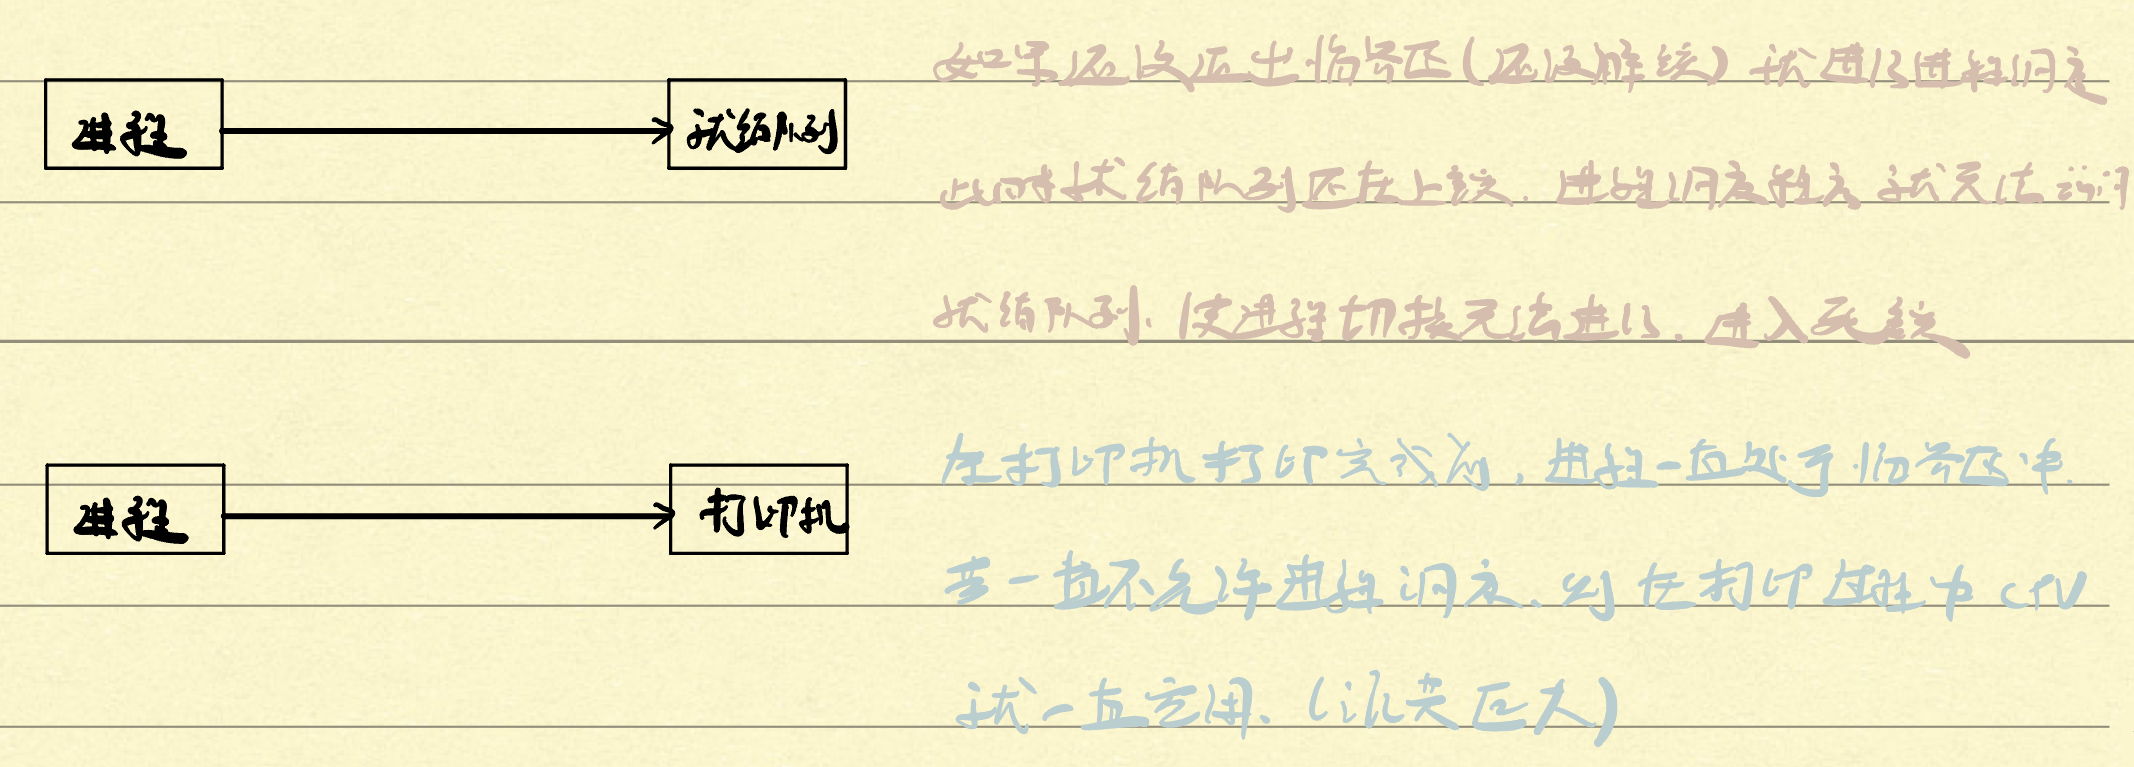 进程
就绪队列
如果还没退出临界区(还没解锁)就进行进程调度
此时就绪队列还在上锁.进程调度程序就无法访问
就绪队列.使进程切换无法进行.进入死锁
进程
打印机
在打印机打印完成前,进程一直处于临界区中.
若一直不允许进程调度.则在打印过程中CPU
就一直空闲.(浪费巨大)